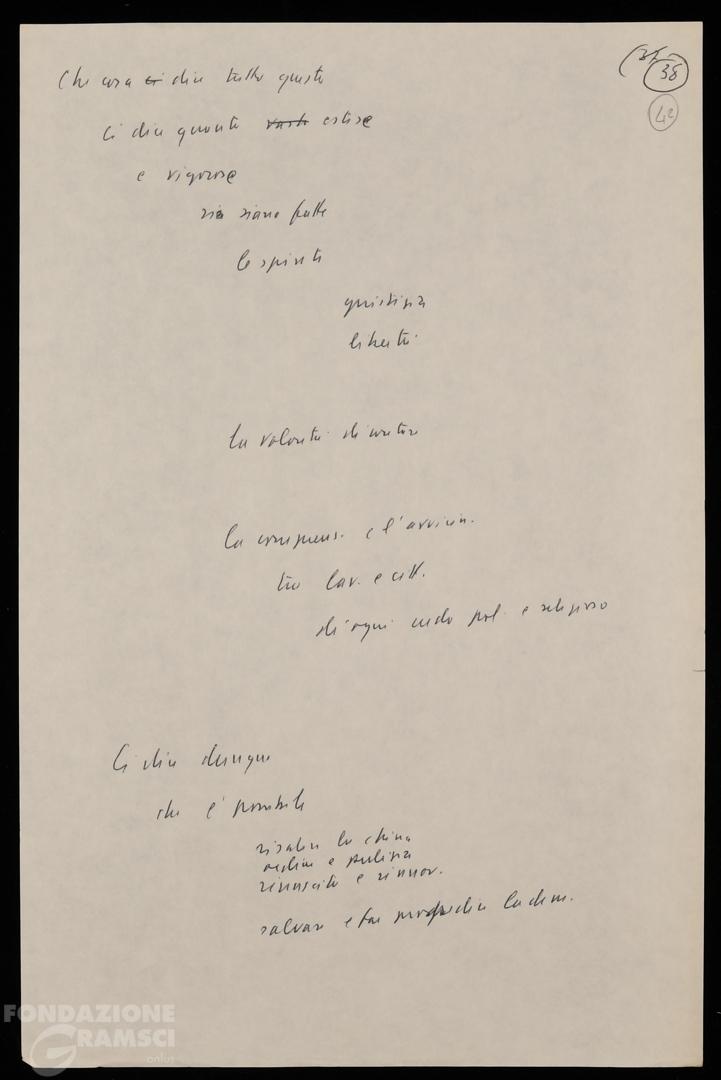 38
42
Che cosa ci dice tutto questo
Ci dice quanto vaste estese
e vigorose
siano fatte
le spinte
giustizia
libertà
la volontà di contare
la comprens. e l'avvicin.
tra lav. e citt.
di ogni credo pol. e religioso
Ci dice dunque
che è possibile
risalire la china
ordine e pulizia
rinascita e rinnov.
salvare e far progredire la dem.
FONDAZIONE
GRAMSCI
onlus